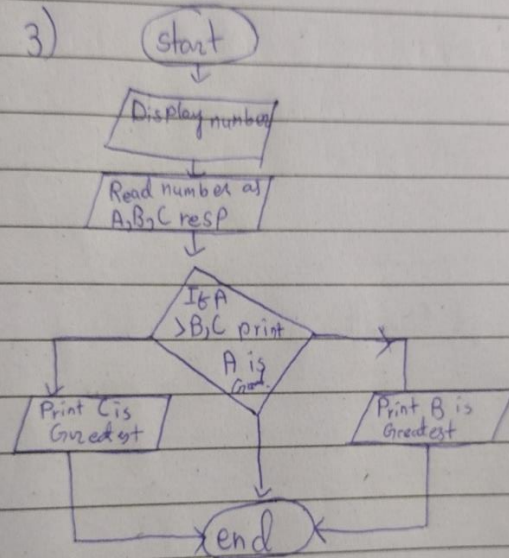 3)
start
Display number
Read number as
A,B,C resp
If A
>B,C print
A is
Print C is
Greatest
Print B is
Greatest
end